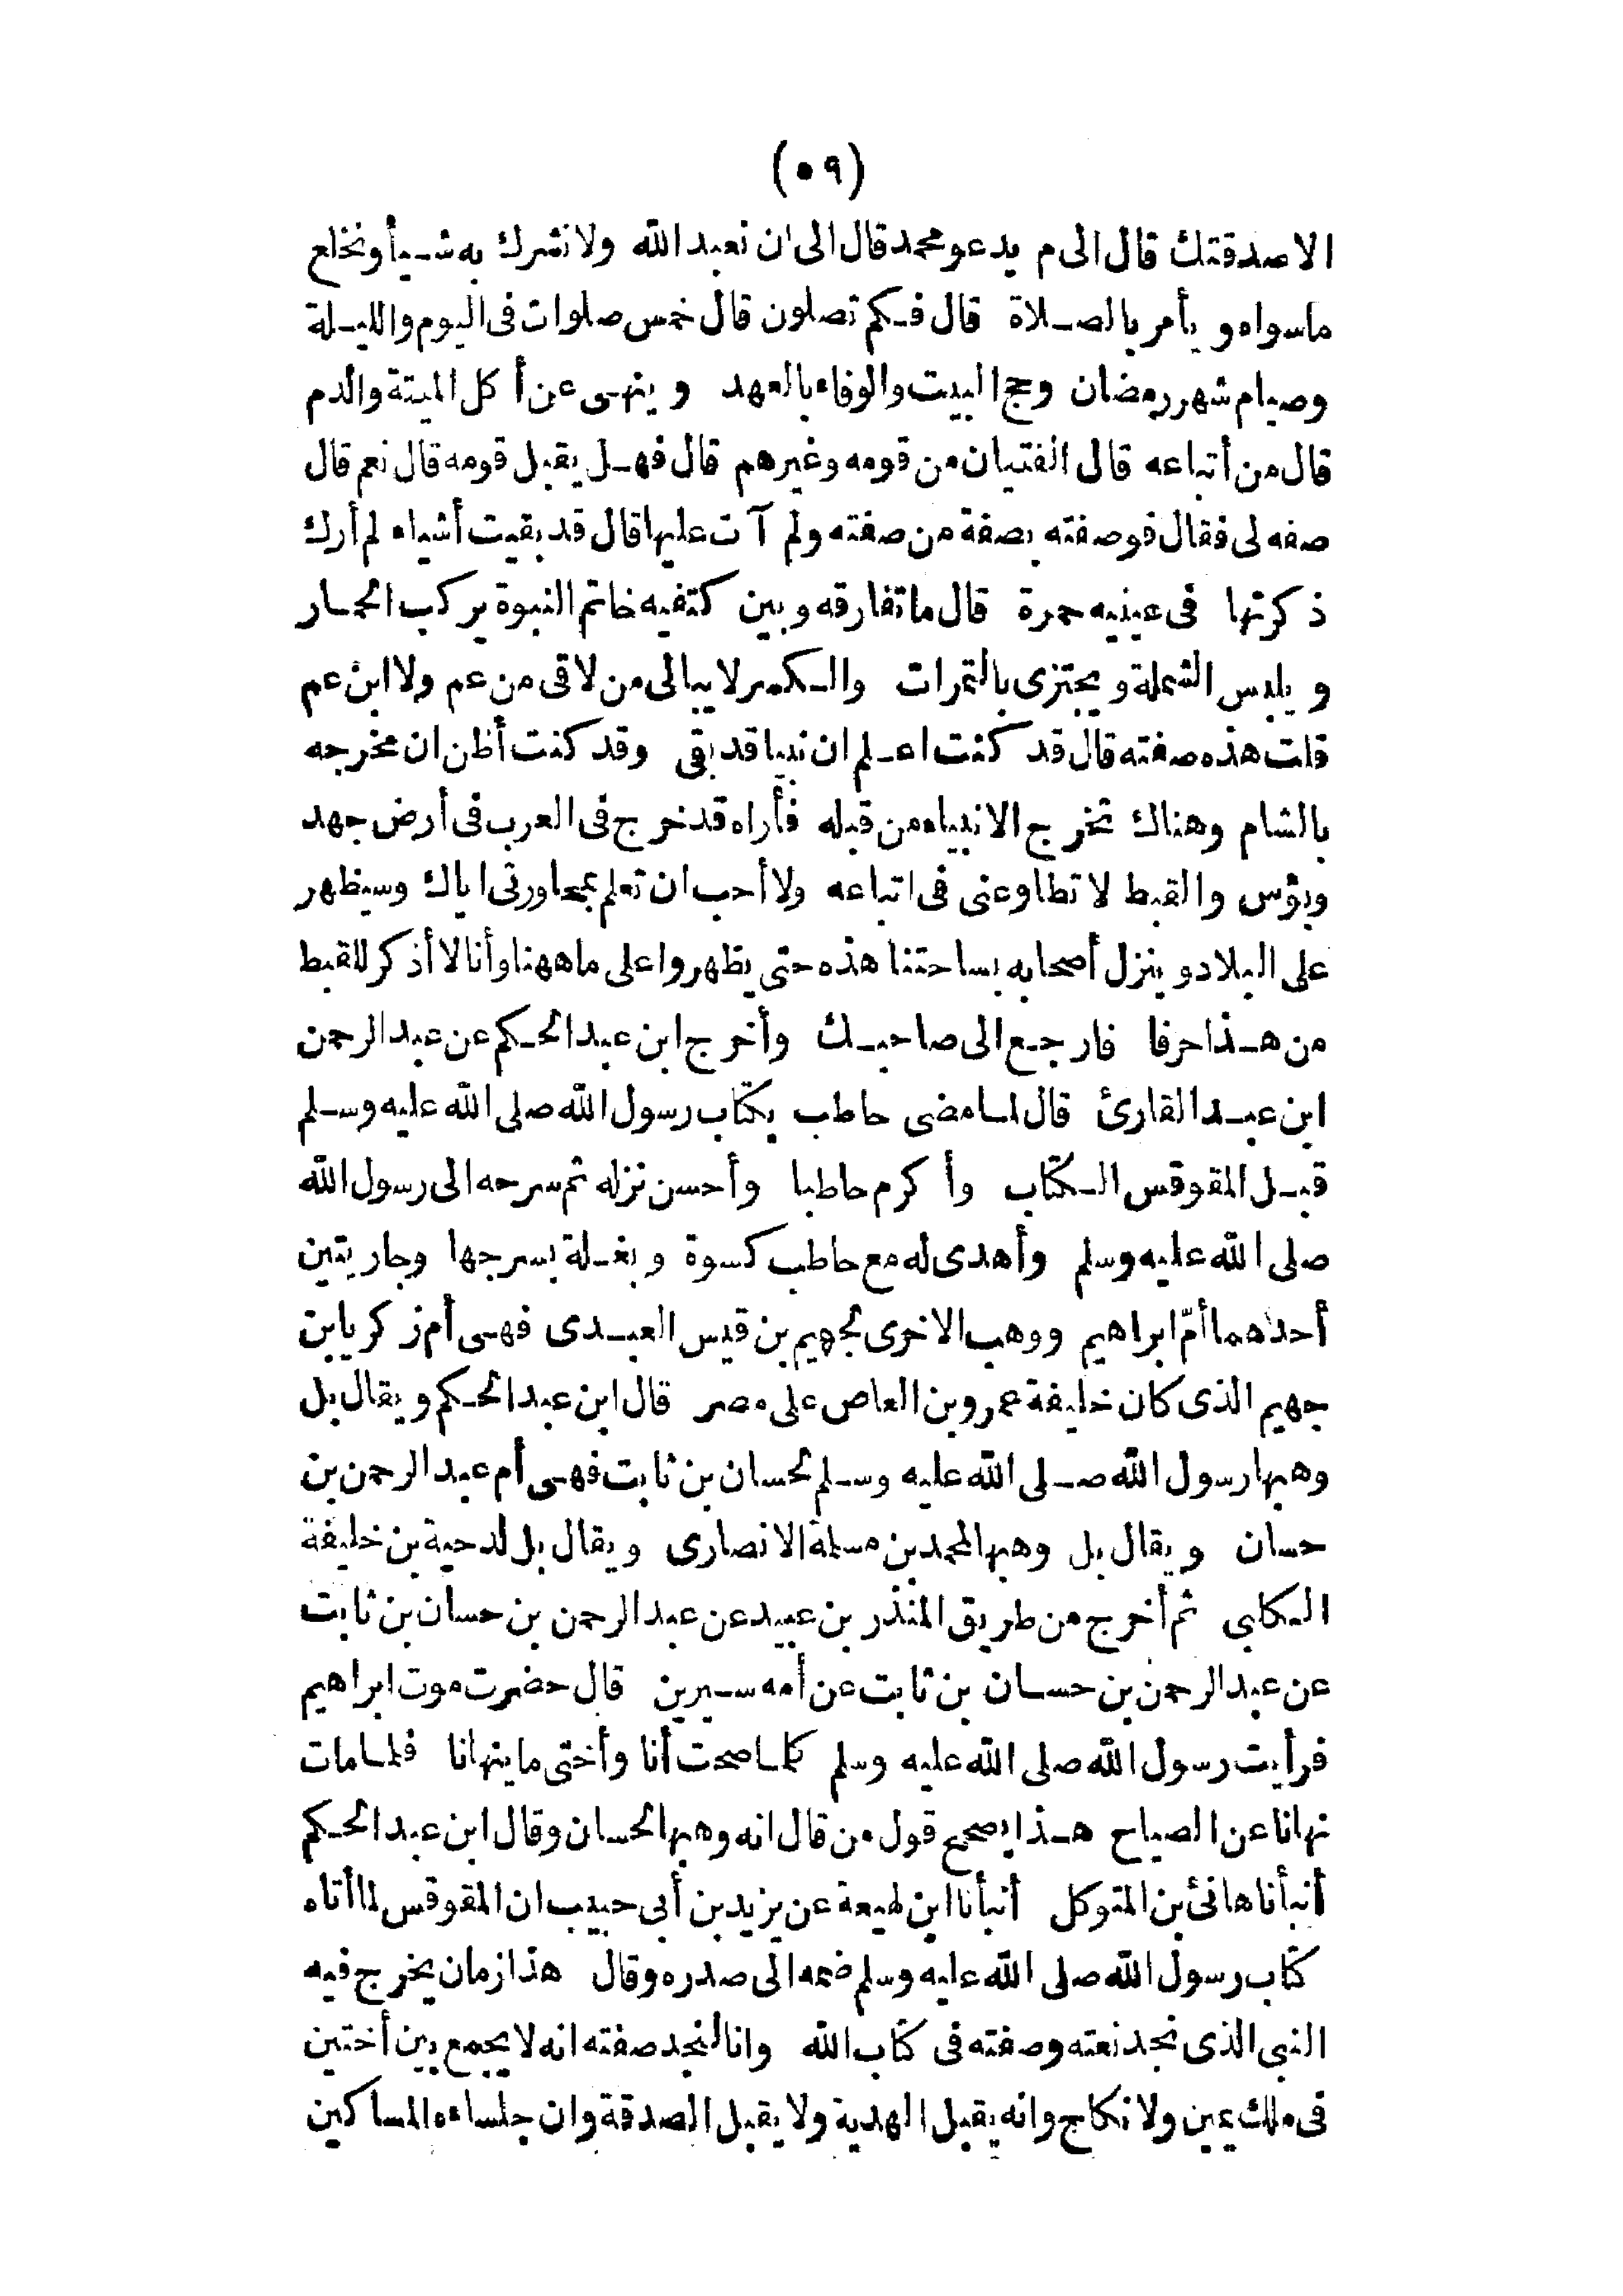 (٥٩)
الا صدقتك قال الى م يدعو محمد قال الى ان نعبد الله ولا نشرك به شيأ ونخلع
ما سواه و يأمر بالصلاة قال فكم تصلون قال خمس صلوات فى اليوم والليلة
وصيام شهر رمضان وحج البيت والوفاء بالعهد و ينهى عن أكل الميتة والدم
قال من أتباعه قال الفتيان من قومه وغيرهم قال فهل يقبل قومه قال نعم قال
صفه لى فقال فوصفته بصفة من صفته ولم آت عليها قال قد بقيت أشياء لم أرك
ذكرتها فى عينيه حمرة قال ما تفارقه و بين كتفيه خاتم النبوة يركب الحمار
و يلبس الشملة و يجتزى بالتمرات والكسر لا يبالى من لاقى من عم ولا ابن عم
قلت هذه صفته قال قد كنت اعلم ان نبيا قد بقى وقد كنت أظن ان مخرجه
بالشام وهناك تخرج الانبياء من قبله فأراه قد خرج فى العرب فى أرض جهد
وبؤس والقبط لا تطاوعنى فى اتباعه ولا أحب ان تعلم بمحاورتى اياك وسيظهر
على البلاد و ينزل أصحابه بساحتنا هذه حتى يظهروا على ما ههنا وأنا لا أذكر للقبط
من هذا حرفا فارجع الى صاحبك وأخرج ابن عبد الحكم عن عبد الرحمن
ابن عبد القارئ قال لما مضى حاطب بكتاب رسول الله صلى الله عليه وسلم
قبل المقوقس الكتاب وأكرم حاطبا وأحسن نزله ثم سرحه الى رسول الله
صلى الله عليه وسلم وأهدى له مع حاطب كسوة و بغلة بسرجها وجاريتين
أحداهما أمّ ابراهيم ووهب الاخرى لجهيم بن قيس العبدى فهى أم زكريا بن
جهيم الذى كان خليفة عمرو بن العاص على مصر قال ابن عبد الحكم و يقال بل
وهبها رسول الله صلى الله عليه وسلم لحسان بن ثابت فهى أم عبد الرحمن بن
حسان و يقال بل وهبها لمحمد بن مسلمة الانصارى و يقال بل لدحية بن خليفة
الكلبى ثم أخرج من طريق المنذر بن عبيد عن عبد الرحمن بن حسان بن ثابت
عن عبد الرحمن بن حسان بن ثابت عن أمه سيرين قال حضرت موت ابراهيم
فرأيت رسول الله صلى الله عليه وسلم كلما صحت أنا وأختى ما ينهانا فلما مات
نهانا عن الصياح هذا يصحح قول من قال انه وهبها لحسان وقال ابن عبد الحكم
أنبأنا هانئ بن المتوكل أنبأنا ابن لهيعة عن يزيد بن أبى حبيب ان المقوقس لما أتاه
كتاب رسول الله صلى الله عليه وسلم ضمه الى صدره وقال هذا زمان يخرج فيه
النبى الذى نجد نعته وصفته فى كتاب الله وانا لنجد صفته انه لا يجمع بين أختين
فى ملك يمين ولا نكاح وانه يقبل الهدية ولا يقبل الصدقة وان جلساءه المساكين